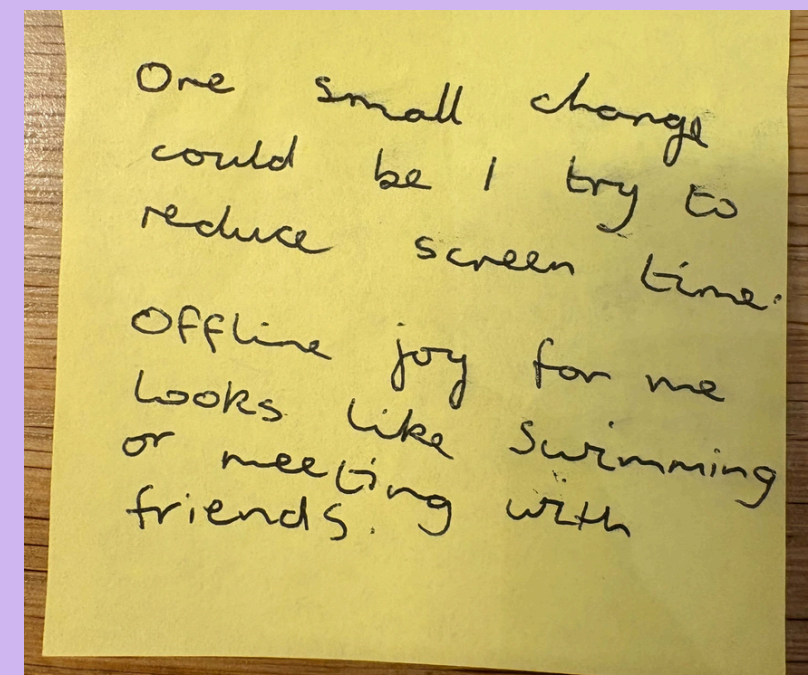 One small change
could be I try to
reduce screen time.
Offline joy for me
looks like swimming
or meeting with
friends.